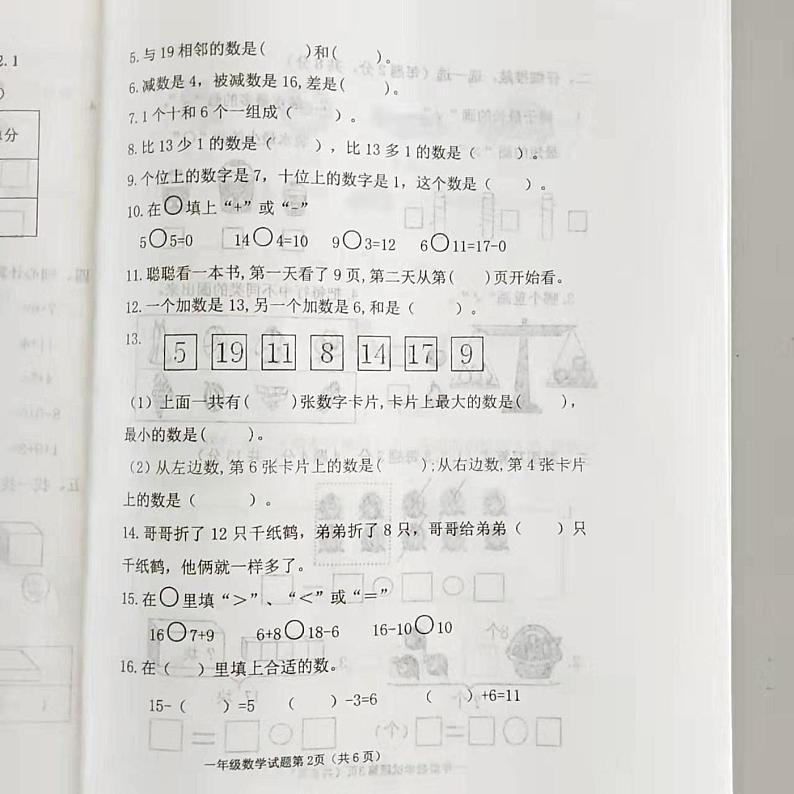 2.1
分
5.与19相邻的数是(  )和(  )。
6.减数是4，被减数是16,差是(  )。
7.1个十和6个一组成（  ）。
8.比13少1的数是（  ），比13多1的数是（  ）。
9.个位上的数字是7，十位上的数字是1，这个数是（  ）。
10.在○填上“+”或“-”
5○5=0 14○4=10 9○3=12 6○11=17-0
11.聪聪看一本书,第一天看了9页,第二天从第(  )页开始看。
12.一个加数是13,另一个加数是6,和是（  ）。
13.
5 19 11 8 14 17 9
（1）上面一共有(  )张数字卡片,卡片上最大的数是(  )，
最小的数是(  )。
（2）从左边数,第6张卡片上的数是(  );从右边数,第4张卡片
上的数是（  ）。
14.哥哥折了12只千纸鹤，弟弟折了8只，哥哥给弟弟（  ）只
千纸鹤，他俩就一样多了。
15.在○里填“>”、“<”或“=”
16○7+9 6+8○18-6 16-10○10
16.在（  ）里填上合适的数。
15-（  ）=5 （  ）-3=6 （  ）+6=11
一年级数学试题第2页（共6页）